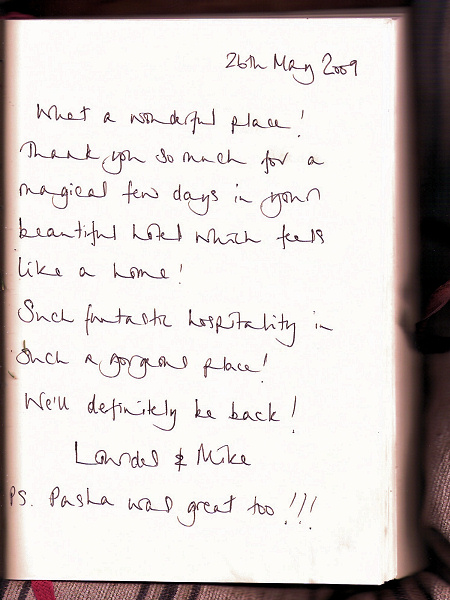 26th May 2009
What a wonderful place!
Thank you so much for a
magical few days in your
beautiful hotel which feels
like a home!
Such fantastic hospitality in
Such a gorgeous place!
We'll definitely be back!
& Mike
PS. Pasha was great too!!!